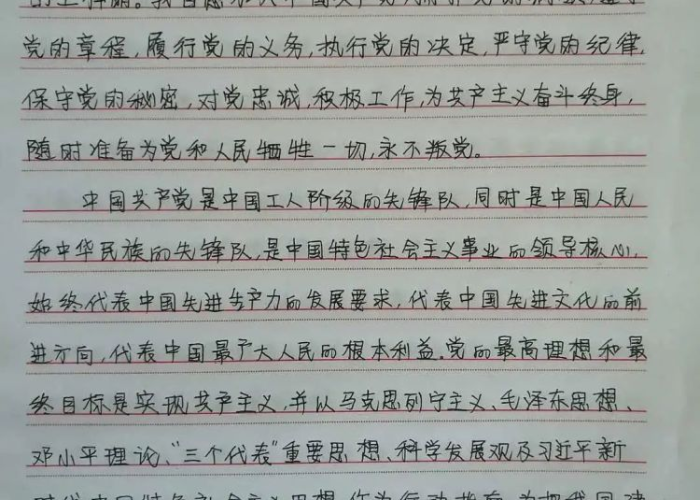 党的章程,履行党的义务,执行党的决定,严守党的纪律,
保守党的秘密,对党忠诚,积极工作,为共产主义奋斗终身,
随时准备为党和人民牺牲一切,永不叛党。
中国共产党是中国工人阶级的先锋队,同时是中国人民
和中华民族的先锋队,是中国特色社会主义事业的领导核心,
始终代表中国先进生产力的发展要求,代表中国先进文化的前
进方向,代表中国最广大人民的根本利益。党的最高理想和最
终目标是实现共产主义,并以马克思列宁主义、毛泽东思想、
邓小平理论、"三个代表"重要思想、科学发展观及习近平新